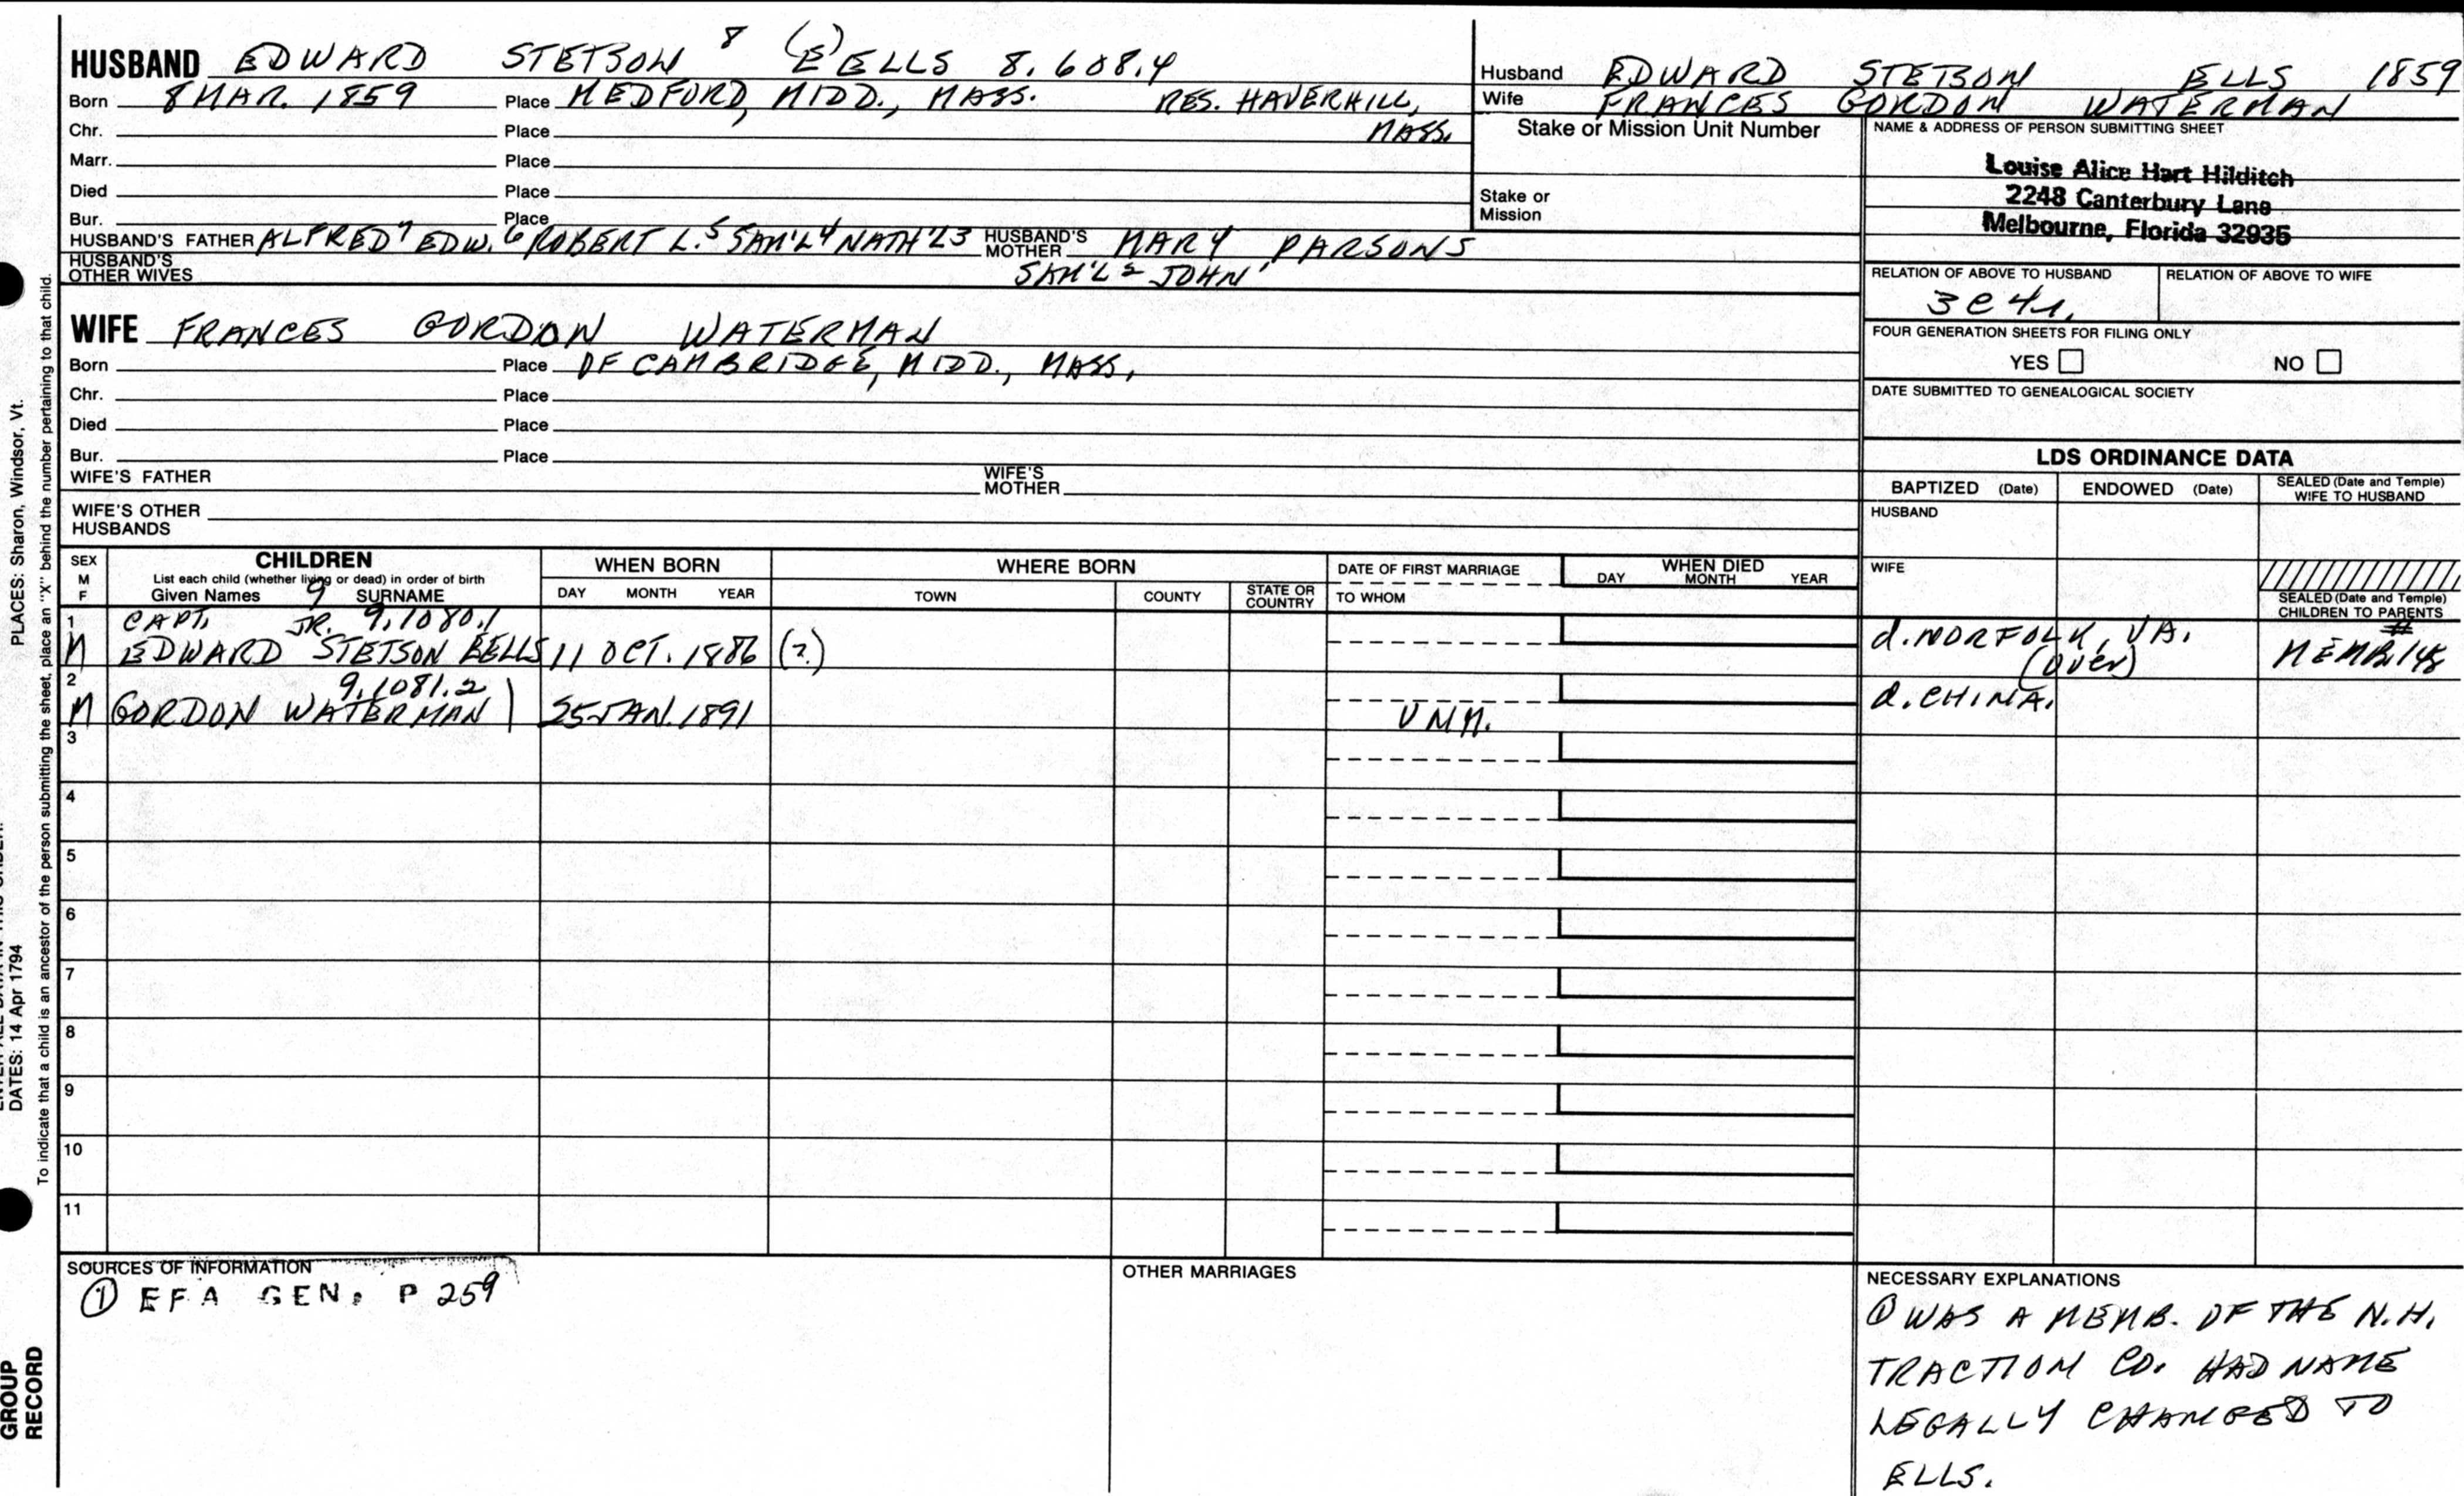 HUSBAND EDWARD STETSON 8 (E)ELLS 8.608.4
Born 8 MAR. 1859 Place MEDFORD, MIDD., MASS. RES. HAVERHILL,
Chr. Place MASS.
Marr. Place
Died Place
Bur. Place
HUSBAND'S FATHER ALFRED7 EDW.6 ROBERT L.5 SAM'L4 NATH'L3 HUSBAND'S MOTHER MARY PARSONS
HUSBAND'S OTHER WIVES SAM'L2 JOHN1
Husband EDWARD STETSON ELLS 1859
Wife FRANCES GORDON WATERMAN
Stake or Mission Unit Number
Stake or Mission
NAME & ADDRESS OF PERSON SUBMITTING SHEET
Louise Alice Hart Hilditch
2248 Canterbury Lane
Melbourne, Florida 32935
RELATION OF ABOVE TO HUSBAND RELATION OF ABOVE TO WIFE
3C4r.
FOUR GENERATION SHEETS FOR FILING ONLY
YES NO
DATE SUBMITTED TO GENEALOGICAL SOCIETY
WIFE FRANCES GORDON WATERMAN
Born Place OF CAMBRIDGE, MIDD., MASS.
Chr. Place
Died Place
Bur. Place
WIFE'S FATHER WIFE'S MOTHER
WIFE'S OTHER HUSBANDS
LDS ORDINANCE DATA
BAPTIZED (Date) ENDOWED (Date) SEALED (Date and Temple) WIFE TO HUSBAND
HUSBAND
WIFE
SEALED (Date and Temple) CHILDREN TO PARENTS
SEX M F
CHILDREN
List each child (whether living or dead) in order of birth
Given Names 9 SURNAME
WHEN BORN
DAY MONTH YEAR
WHERE BORN
TOWN COUNTY STATE OR COUNTRY
DATE OF FIRST MARRIAGE
TO WHOM
WHEN DIED
DAY MONTH YEAR
1 CAPT. JR. 9.1080.1
M EDWARD STETSON EELLS 11 OCT. 1886 (?) d. NORFOLK, VA. #
(over) MEMB. 148
2 9.1081.2
M GORDON WATERMAN 25 JAN. 1891 UNM. d. CHINA.
3
4
5
6
7
8
9
10
11
SOURCES OF INFORMATION
① EFA GEN. P 259
OTHER MARRIAGES
NECESSARY EXPLANATIONS
① WAS A MEMB. OF THE N.H.
TRACTION CO. HAD NAME
LEGALLY CHANGED TO
ELLS.
PLACES: Sharon, Windsor, Vt.
DATES: 14 Apr 1794
To indicate that a child is an ancestor of the person submitting the sheet, place an "X" behind the number pertaining to that child.
GROUP
RECORD